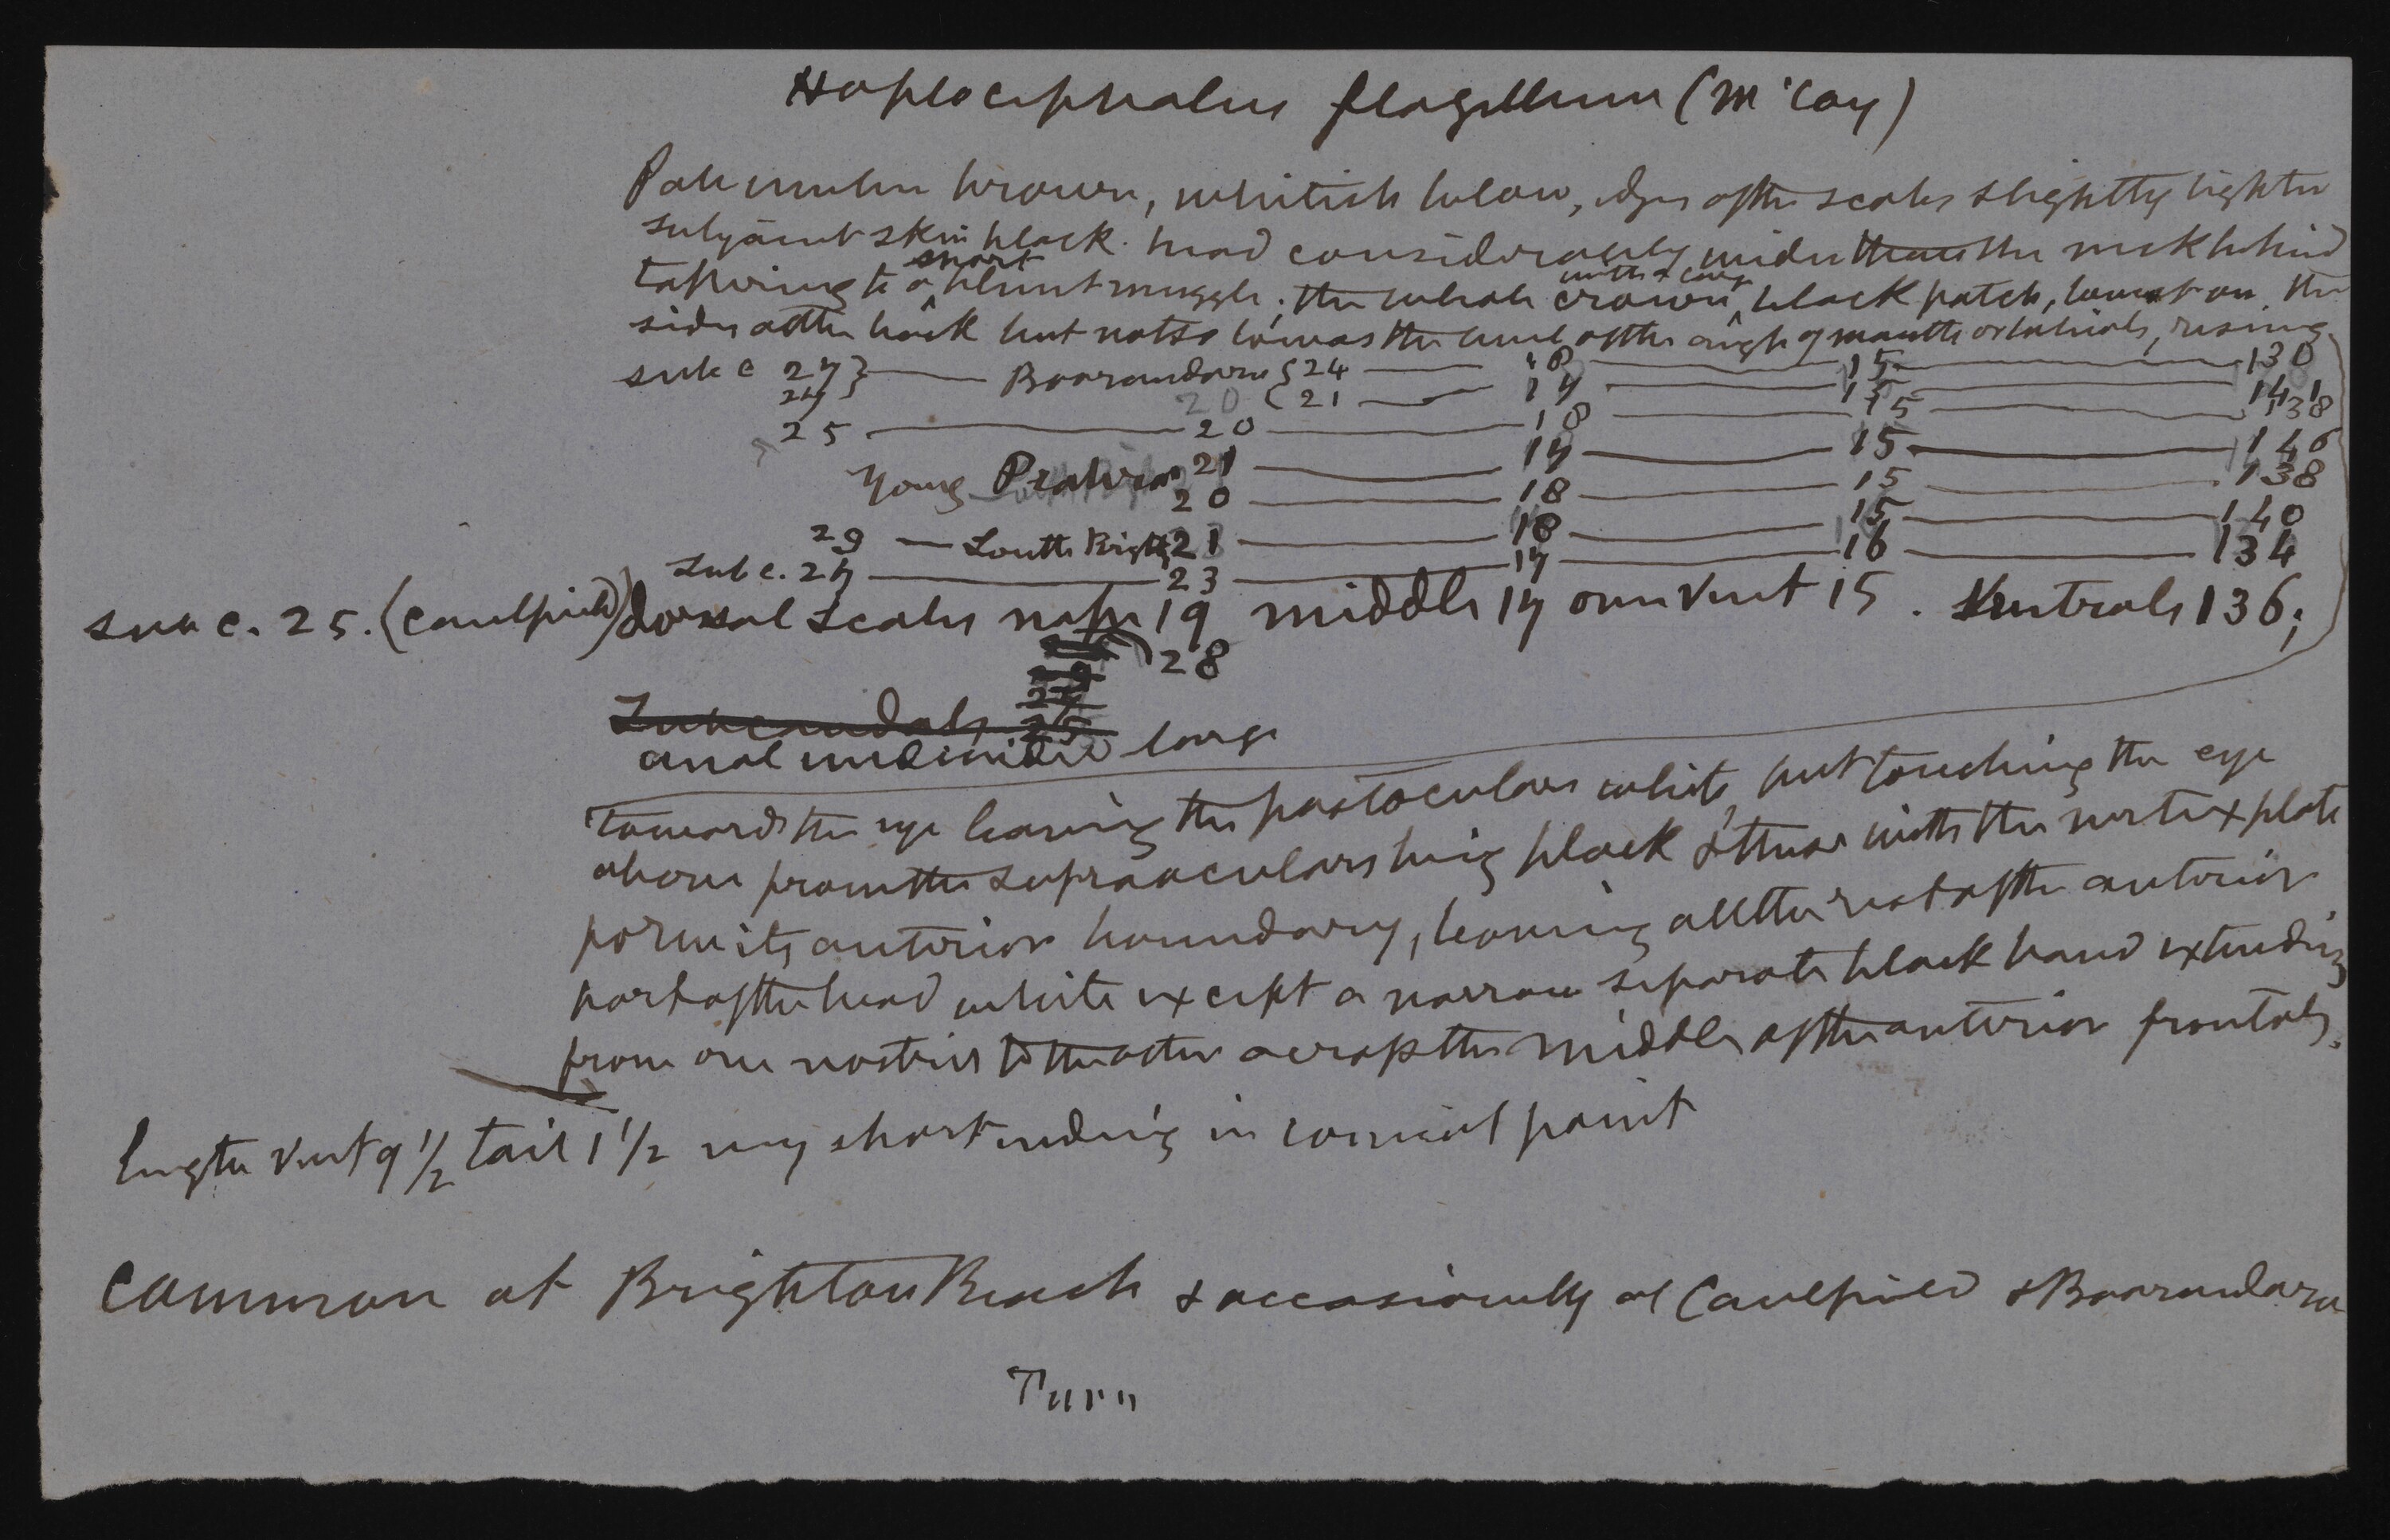 Hoplocephalus flagellum (McCoy)
Pale umber brown, whitish below, edges of the scales slightly lighter
subjacent skin black. head considerably wider than the neck behind
tapering to a short blunt muzzle; the whole crown with a large black patch, lowest on the
sides of the back but not so low as the level of the angle of mouth or labials, rising
sub c 27} — Boorandara {24 — 18 — 15 — 130
27} (21 — 17 — 15 — 141
25 — 20 — 18 — 15 — 138
Young Prahran 21 — 17 — 15 — 146
20 — 18 — 15 — 138
29 — South Brigh 21 — 18 — 15 — 140
sub c. 27 — 23 — 17 — 16 — 134
sub c. 25. (Caulfield) dorsal scales nape 19 middle 17 over vent 15. Ventrals 136;
28
Subcaudals 25
anal undivided large
towards the eye leaving the postoculars white, but touching the eye
above from the supraoculars being black & these with the vertex plate
form its anterior boundary, leaving all the rest of the anterior
part of the head white except a narrow separate black band extending
from one nostril to the other across the middle of the anterior frontals.
length vent 9 1/2 tail 1 1/2 very short ending in conical point
Common at Brighton Beach & occasionally at Caulfield & Boorandara
Turn